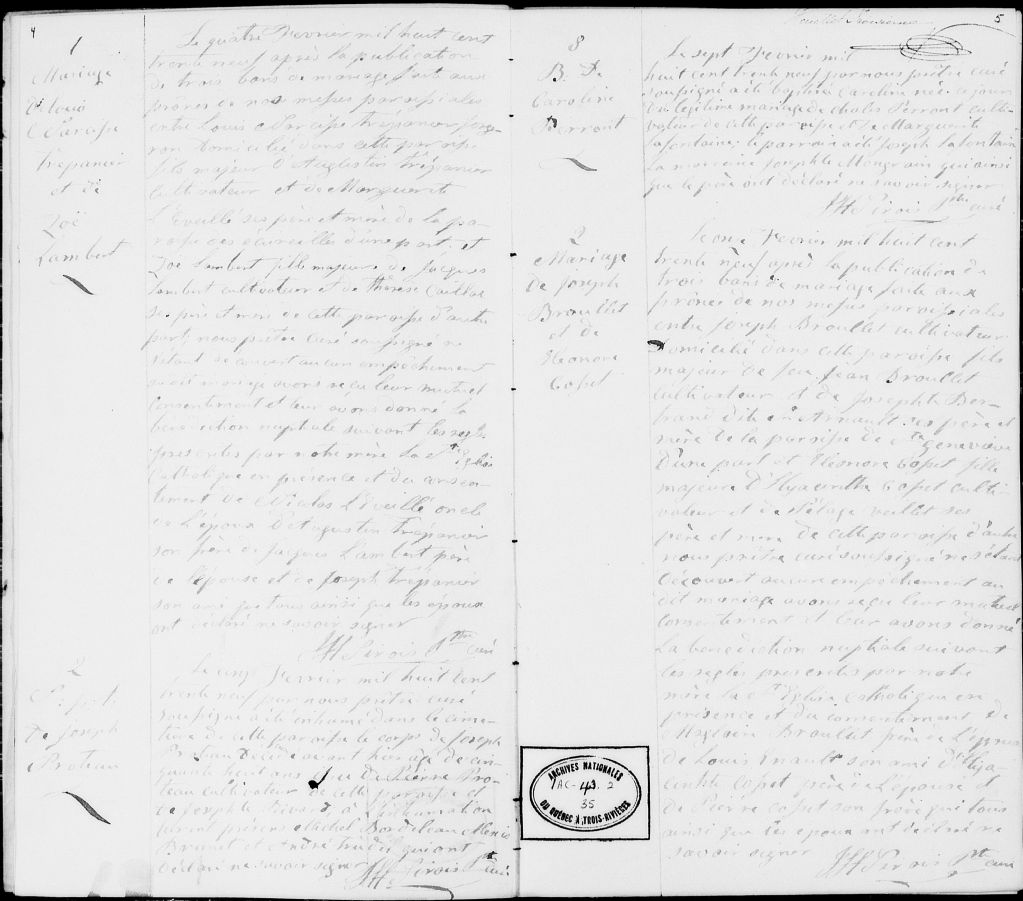 4
1
Mariage
de Louis
Narcisse
Trépanier
et de
Zoë
Lambert
Le quatre Fevrier mil huit cent
trente neuf après la publication
de trois bans de mariage fait aux
prônes de nos messes paroissiales
entre Louis Narcisse Trépanier
domicilié dans cette paroisse
fils majeur d'Augustin Trépanier
cultivateur et de Marguerite
L'Eveillé ses père et mère de la pa-
roisse des écureilles d'une part, et
Zoë Lambert fille majeure de Jacques
Lambert cultivateur et de Thérèse
ses père et mère de cette paroisse d'autre
part, nous prêtre curé soussigné ne
s'étant découvert aucun empêchement
au dit mariage avons reçu leur mutuel
consentement et leur avons donné la
bénédiction nuptiale suivant les regles
prescrites par notre mère la Ste Eglise
Catholique en présence et du consen-
tement de Nicolas L'Eveillé oncle
de l'époux d'Augustin Trépanier
son frère de Jacques Lambert père
de l'épouse et de Joseph Trépanier
son ami que tous ainsi que les époux
ont déclaré ne savoir signer
JH Sirois Ptre curé
2
de Joseph
Proteau
Le onze Fevrier mil huit cent
trente neuf par nous prêtre curé
soussigné a été inhumé dans le cime-
tière de cette paroisse le corps de Joseph
Proteau décédé avant hier agé de cin-
quante huit ans de Pierre Pro-
teau cultivateur de cette paroisse et
de Josephte à l'inhumation
furent présens Michel Bordeleau
Brunet et André Trudel qui ont
déclaré ne savoir signer JH Sirois Ptre curé
5
B. 
Caroline
Perront
Le sept Fevrier mil
huit cent trente neuf par nous prêtre curé
soussigné a été baptisée Caroline née ce jour
du légitime mariage de Charles Perront culti-
vateur de cette paroisse et de Marguerite
Lafontaine; le parrain a été Joseph Lafontaine
la marraine Josephte Mongrain qui ainsi
que le père ont déclaré ne savoir signer
JH Sirois Ptre curé
2
Mariage
de Joseph
Broullet
et de
Eleonore
Cosset
Le onze Fevrier mil huit cent
trente neuf après la publication de
trois bans de mariage faite aux
prônes de nos messes paroissiales
entre Joseph Broullet cultivateur
domicilié dans cette paroisse fils
majeur de feu Jean Broullet
cultivateur et de Josephte Ber-
trand dite Arnault ses père et
mère de la paroisse de Ste Geneviève
d'une part et Eleonore Cosset fille
majeure d'Hyacinthe Cosset culti-
vateur et de Pélagie Veillet ses
père et mère de cette paroisse d'autre
nous prêtre curé soussigné ne s'étant
découvert aucun empêchement au
dit mariage avons reçu leur mutuel
consentement et leur avons donné
la bénédiction nuptiale suivant
les regles prescrites par notre
mère la Ste Eglise Catholique en
présence et du consentement de
Broullet frère de l'époux
de Louis Enault son ami d'Hya-
cinthe Cosset père de l'épouse et
de Pierre Cosset son frère qui tous
ainsi que les époux ont déclaré ne
savoir signer
JH Sirois Ptre curé
ARCHIVES NATIONALES
AC-43.2
35
DU QUÉBEC À TROIS-RIVIÈRES